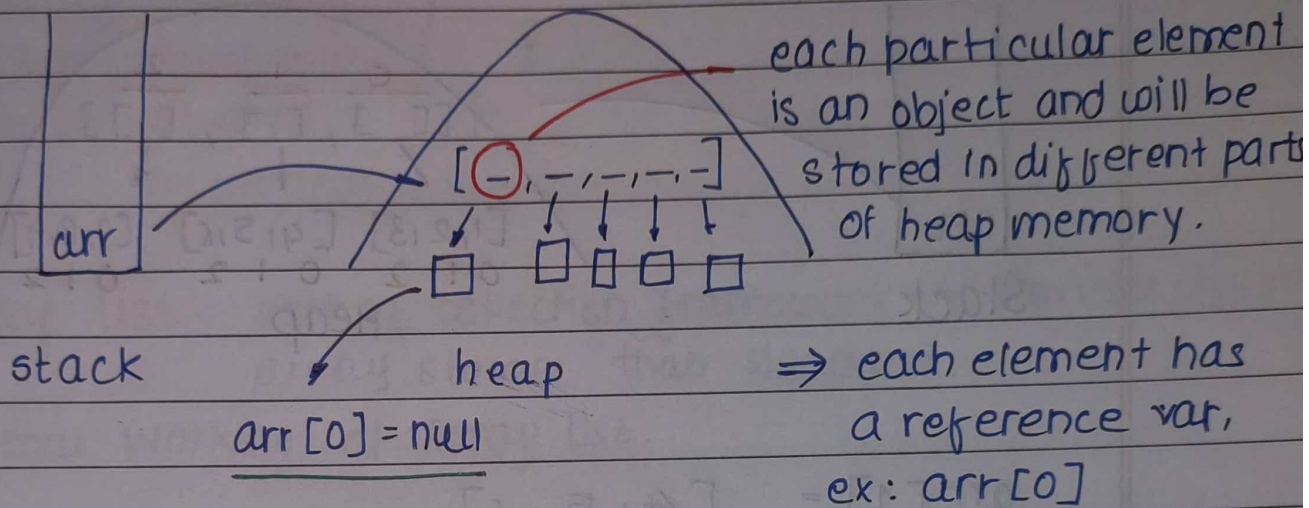 each particular element
is an object and will be
[-, -, -, -, -]
stored in different parts
arr
of heap memory.
stack
heap
⇒ each element has
arr[0] = null
a reference var,
ex: arr[0]